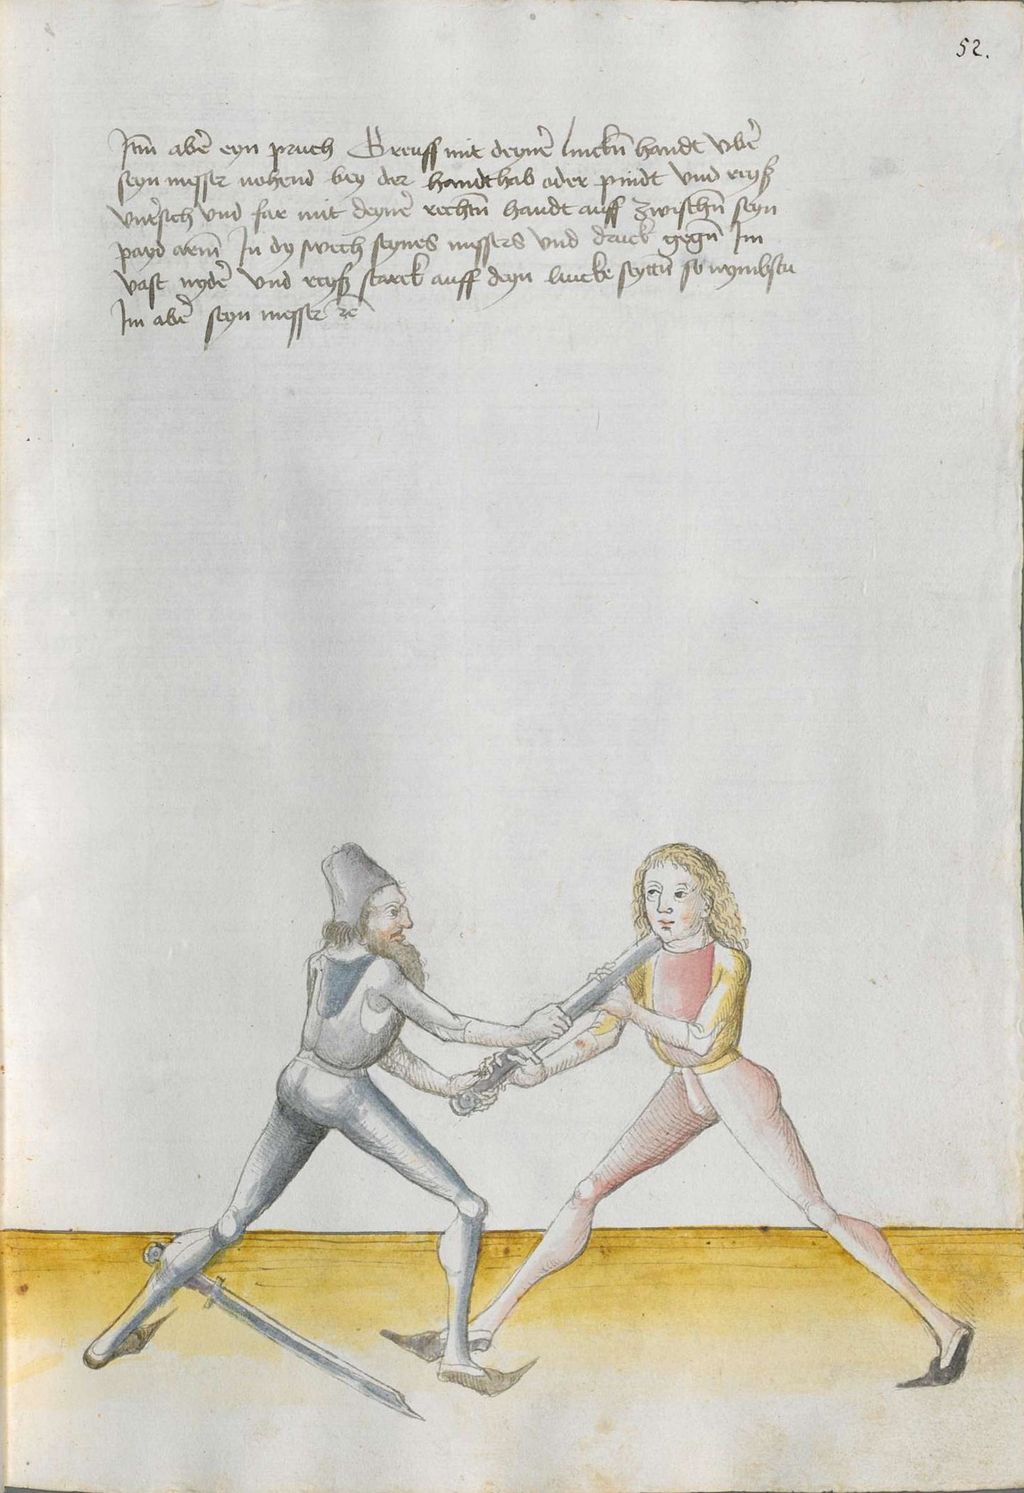 52.
Itm̄ abẽ eyn pruch Greuff mit deynẽ linckñ handt vbẽ
seyn messer nohend bey der handthab oder pindt vnd reyß
vntẽsich vnd far mit deynẽ rechtñ handt auff zwischñ seyn
payd arm̄ In dy swech seynes messers vnd druck gegñ Im
vast nydẽ vnd reyß starck auff deyn lincke seyttñ so nymbstu
Im abẽ seyn messer ꝛc